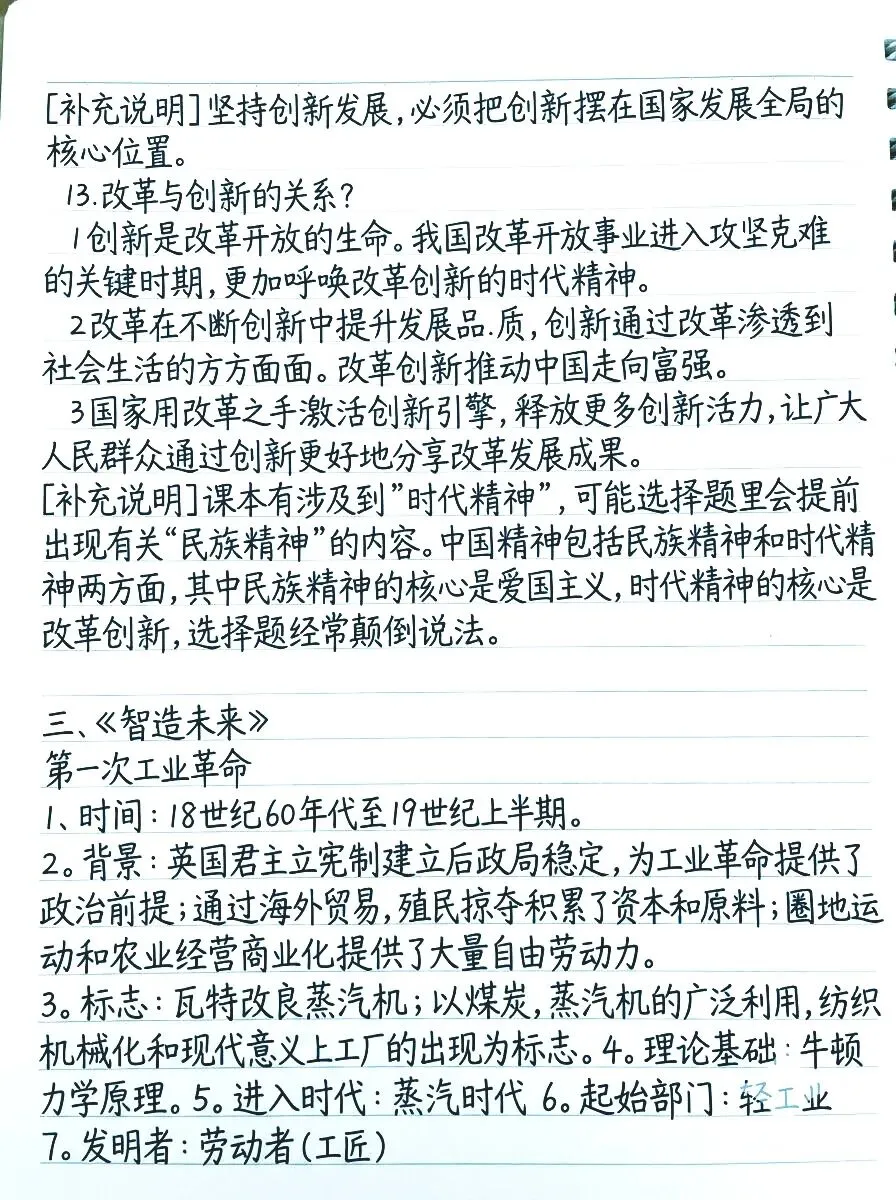 [补充说明]坚持创新发展,必须把创新摆在国家发展全局的
核心位置。
13.改革与创新的关系?
1创新是改革开放的生命。我国改革开放事业进入攻坚克难
的关键时期,更加呼唤改革创新的时代精神。
2改革在不断创新中提升发展品.质,创新通过改革渗透到
社会生活的方方面面。改革创新推动中国走向富强。
3国家用改革之手激活创新引擎,释放更多创新活力,让广大
人民群众通过创新更好地分享改革发展成果。
[补充说明]课本有涉及到”时代精神”,可能选择题里会提前
出现有关“民族精神”的内容。中国精神包括民族精神和时代精
神两方面,其中民族精神的核心是爱国主义,时代精神的核心是
改革创新,选择题经常颠倒说法。
三、《智造未来》
第一次工业革命
1、时间:18世纪60年代至19世纪上半期。
2。背景:英国君主立宪制建立后政局稳定,为工业革命提供了
政治前提;通过海外贸易,殖民掠夺积累了资本和原料;圈地运
动和农业经营商业化提供了大量自由劳动力。
3。标志:瓦特改良蒸汽机;以煤炭,蒸汽机的广泛利用,纺织
机械化和现代意义上工厂的出现为标志。4。理论基础:牛顿
力学原理。5。进入时代:蒸汽时代 6。起始部门:轻工业
7。发明者:劳动者(工匠)